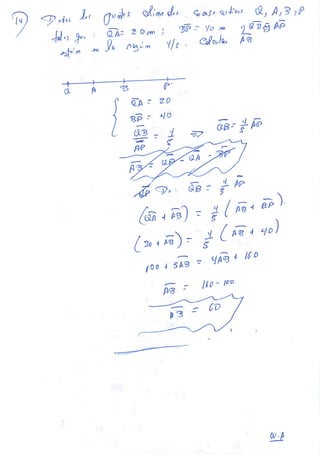 14) Dados los puntos alineados consecutivos Q, A, B, P
tales que: QA = 20 m; BP = 40 m y QB y AP
están en la razón 4/5. Calcular AB
Q A B P
QA = 20
BP = 40
QB/AP = 4/5 ⇒ QB = 4/5 AP
AB = QP - QA - BP
De: QB = 4/5 AP
(QA + AB) = 4/5 (AB + BP)
(20 + AB) = 4/5 (AB + 40)
100 + 5AB = 4AB + 160
AB = 160 - 100
AB = 60